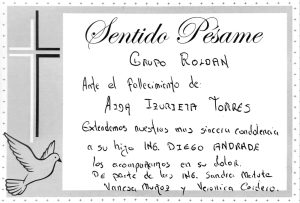 Sentido Pésame
GRUPO ROLDAN
Ante el fallecimiento de:
AIDA IZURIETA TORRES
Extendemos nuestras mas sincera condolencia
a su hijo ING. DIEGO ANDRADE
los acompañamos en su dolor.
De parte de las ING. Sandra Matute
Vanesa Muñoz y Veronica Cordero.